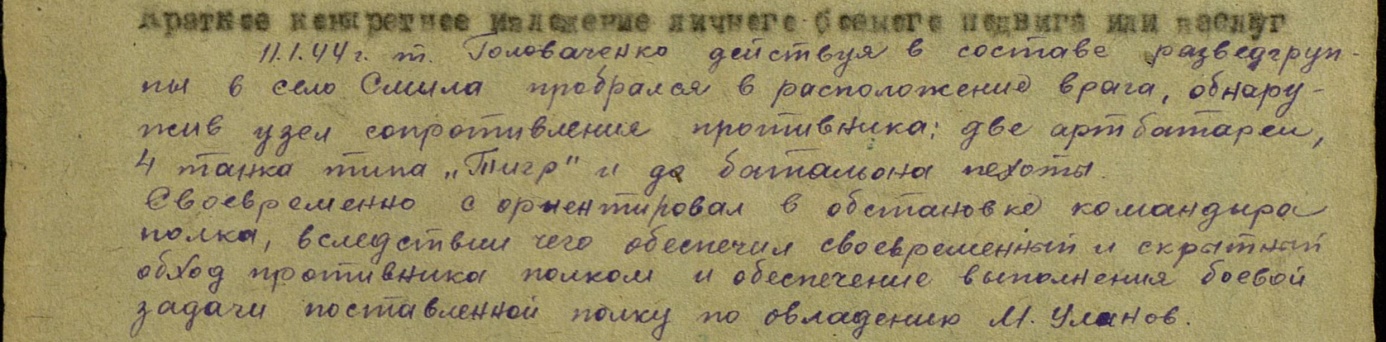 Краткое конкретное изложение личного боевого подвига или заслуг
11.1.44 г. т. Головаченко действуя в составе разведгруп-
пы в село Смила пробрался в расположение врага, обнару-
жив узел сопротивления противника; две артбатареи,
4 танка типа „Тигр" и до батальона пехоты.
Своевременно с ориентировал в обстановке командира
полка, вследствии чего обеспечил своевременный и скрытный
обход противника полком и обеспечение выполнения боевой
задачи поставленной полку по овладению М. Уланов.